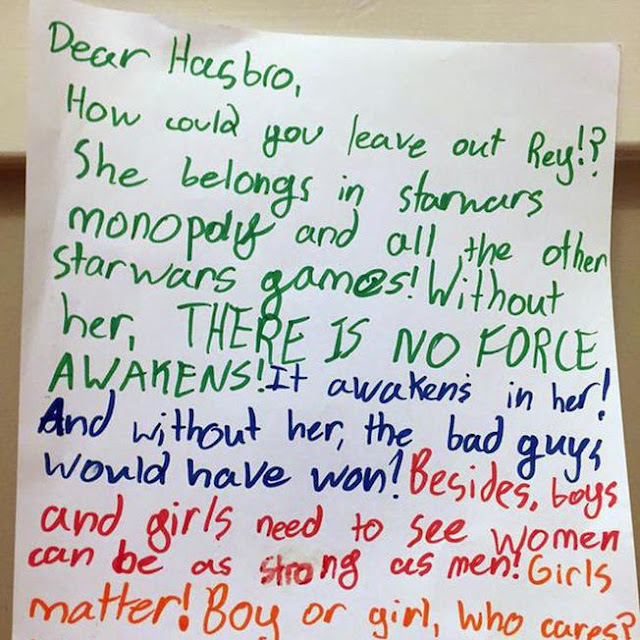 Dear Hasbro,
How could you leave out Rey!?
She belongs in starwars
monopoly and all the other
starwars games! Without
her, THERE IS NO FORCE
AWAKENS! It awakens in her!
And without her, the bad guys
would have won! Besides, boys
and girls need to see women
can be as strong as men! Girls
matter! Boy or girl, who cares?